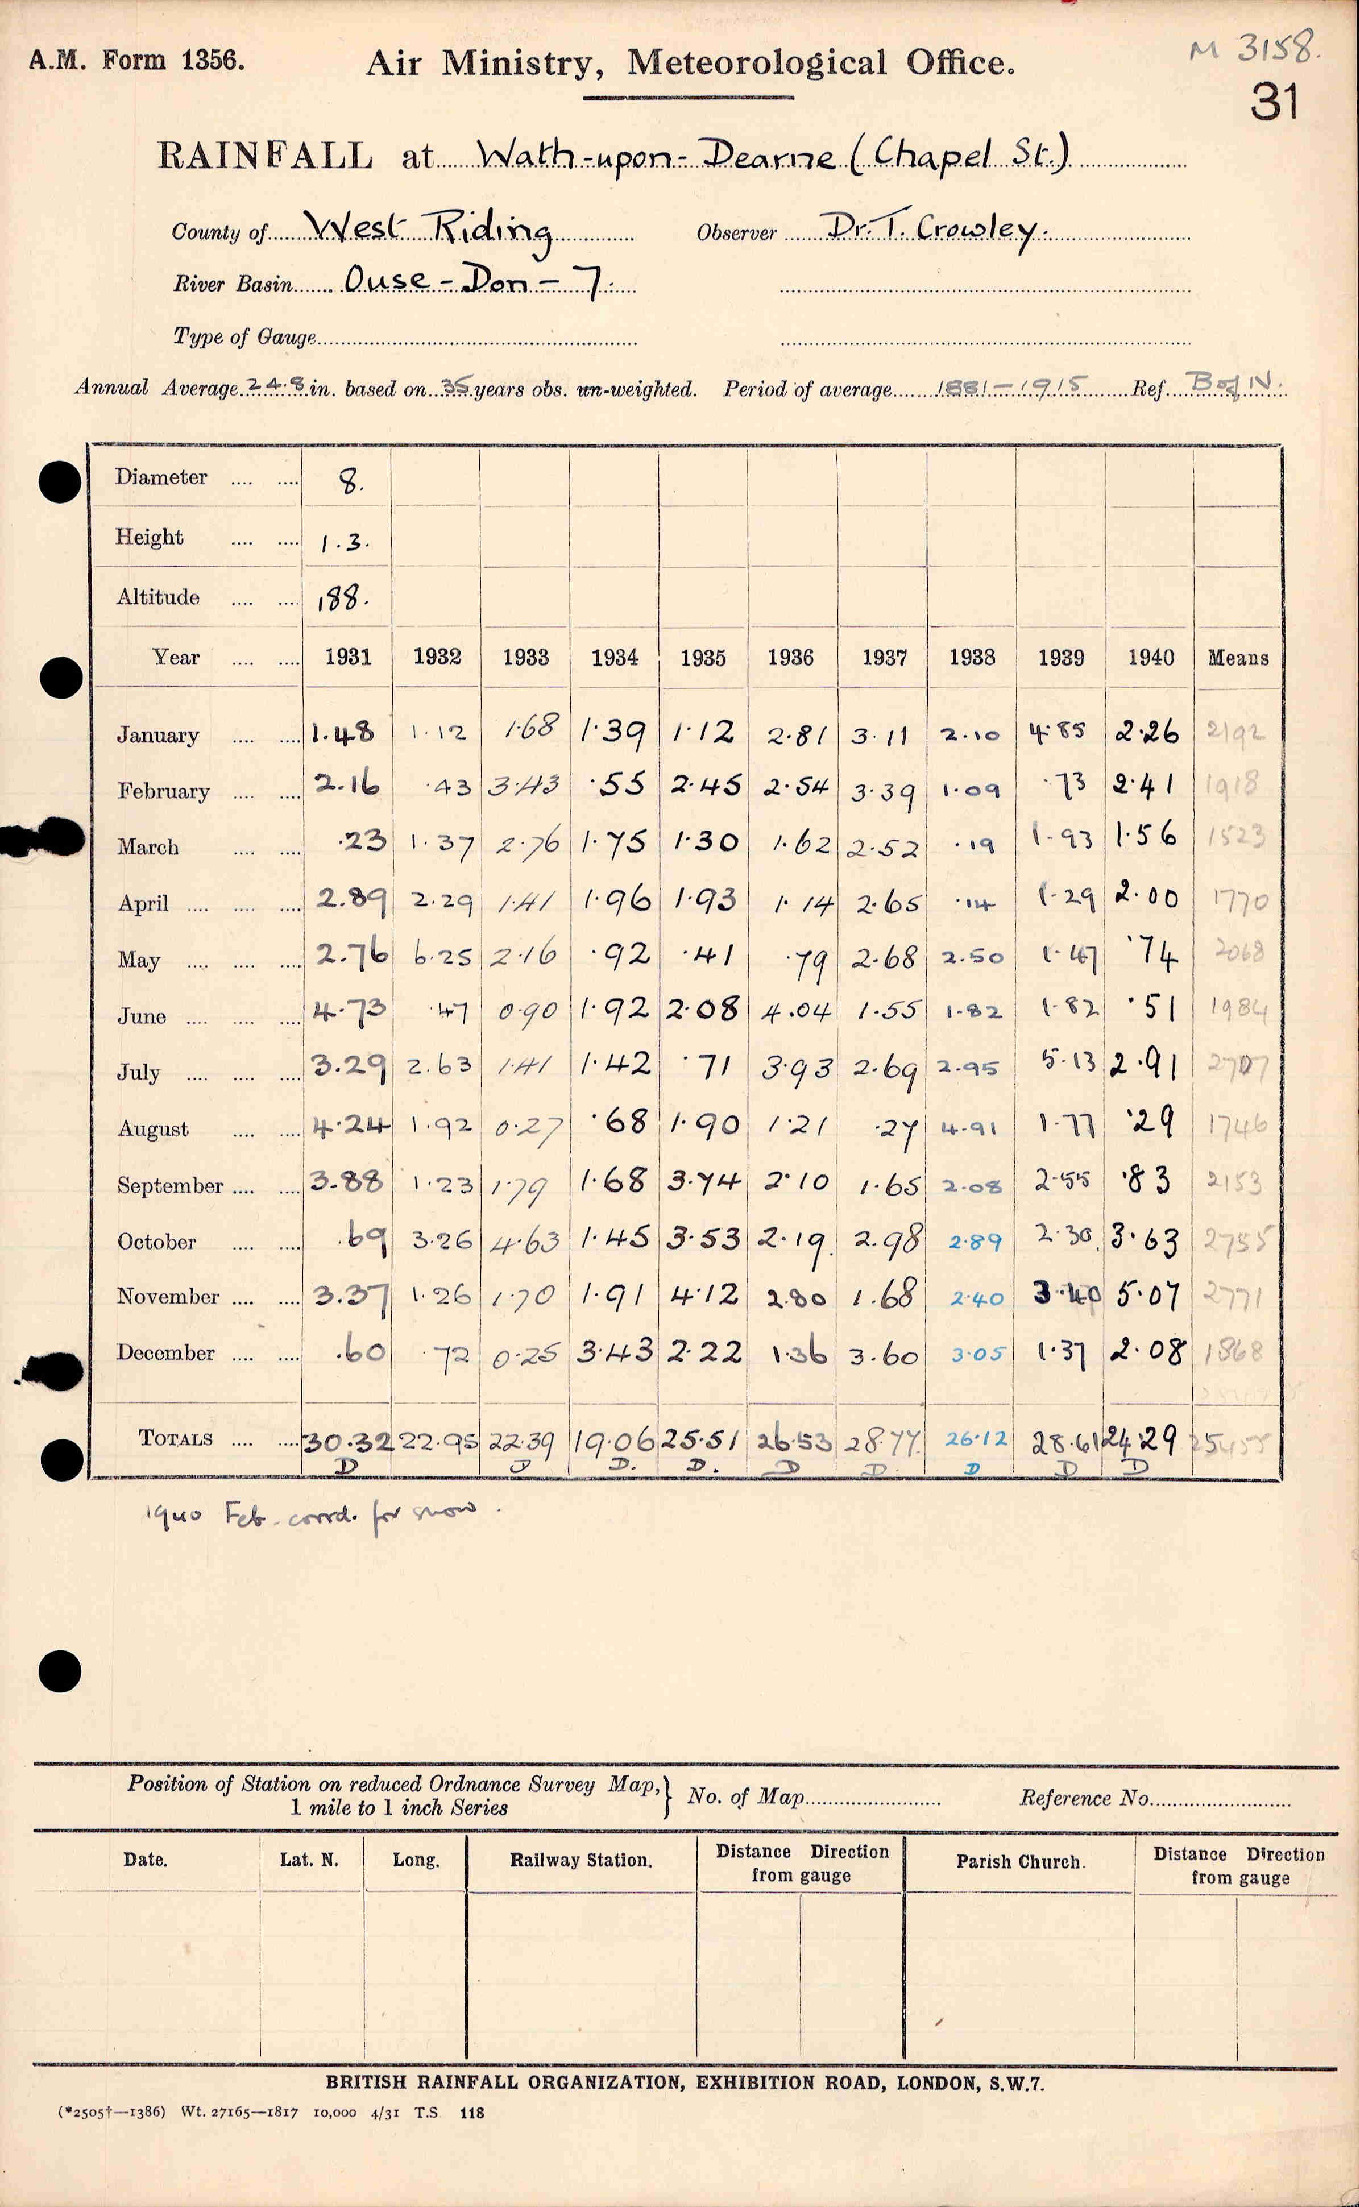 M 3158.
A.M. Form 1356. Air Ministry, Meteorological Office.
31
RAINFALL at Wath-upon-Dearne (Chapel St.)
County of West Riding Observer Dr. T. Crowley.
River Basin Ouse - Don - 7.
Type of Gauge
Annual Average 24.8 in. based on 35 years obs. un-weighted. Period of average 1881-1915 Ref. B of N.
Diameter 8.
Height 1.3.
Altitude 188.
Year 1931 1932 1933 1934 1935 1936 1937 1938 1939 1940 Means
January 1.48 1.12 1.68 1.39 1.12 2.81 3.11 2.10 4.85 2.26 2192
February 2.16 .43 3.43 .55 2.45 2.54 3.39 1.09 .73 2.41 1918
March .23 1.37 2.76 1.75 1.30 1.62 2.52 .19 1.93 1.56 1523
April 2.89 2.29 1.41 1.96 1.93 1.14 2.65 .14 1.29 2.00 1770
May 2.76 6.25 2.16 .92 .41 .79 2.68 2.50 1.47 .74 2068
June 4.73 .47 0.90 1.92 2.08 4.04 1.55 1.82 1.82 .51 1984
July 3.29 2.63 1.41 1.42 .71 3.93 2.69 2.95 5.13 2.91 2707
August 4.24 1.92 0.27 .68 1.90 1.21 .27 4.91 1.77 .29 1746
September 3.88 1.23 1.79 1.68 3.74 2.10 1.65 2.08 2.55 .83 2153
October .69 3.26 4.63 1.45 3.53 2.19 2.98 2.89 2.30 3.63 2755
November 3.37 1.26 1.70 1.91 4.12 2.80 1.68 2.40 3.40 5.07 2771
December .60 .72 0.25 3.43 2.22 1.36 3.60 3.05 1.37 2.08 1868
TOTALS 30.32 22.95 22.39 19.06 25.51 26.53 28.77 26.12 28.61 24.29 25455
D D D. D. D D. D D D
1940 Feb. corrd. for snow.
Position of Station on reduced Ordnance Survey Map,} No. of Map Reference No.
1 mile to 1 inch Series
Date. Lat. N. Long. Railway Station. Distance Direction from gauge Parish Church. Distance Direction from gauge
BRITISH RAINFALL ORGANIZATION, EXHIBITION ROAD, LONDON, S.W.7.
(*2505†—1386) Wt. 27165—1817 10,000 4/31 T.S. 118